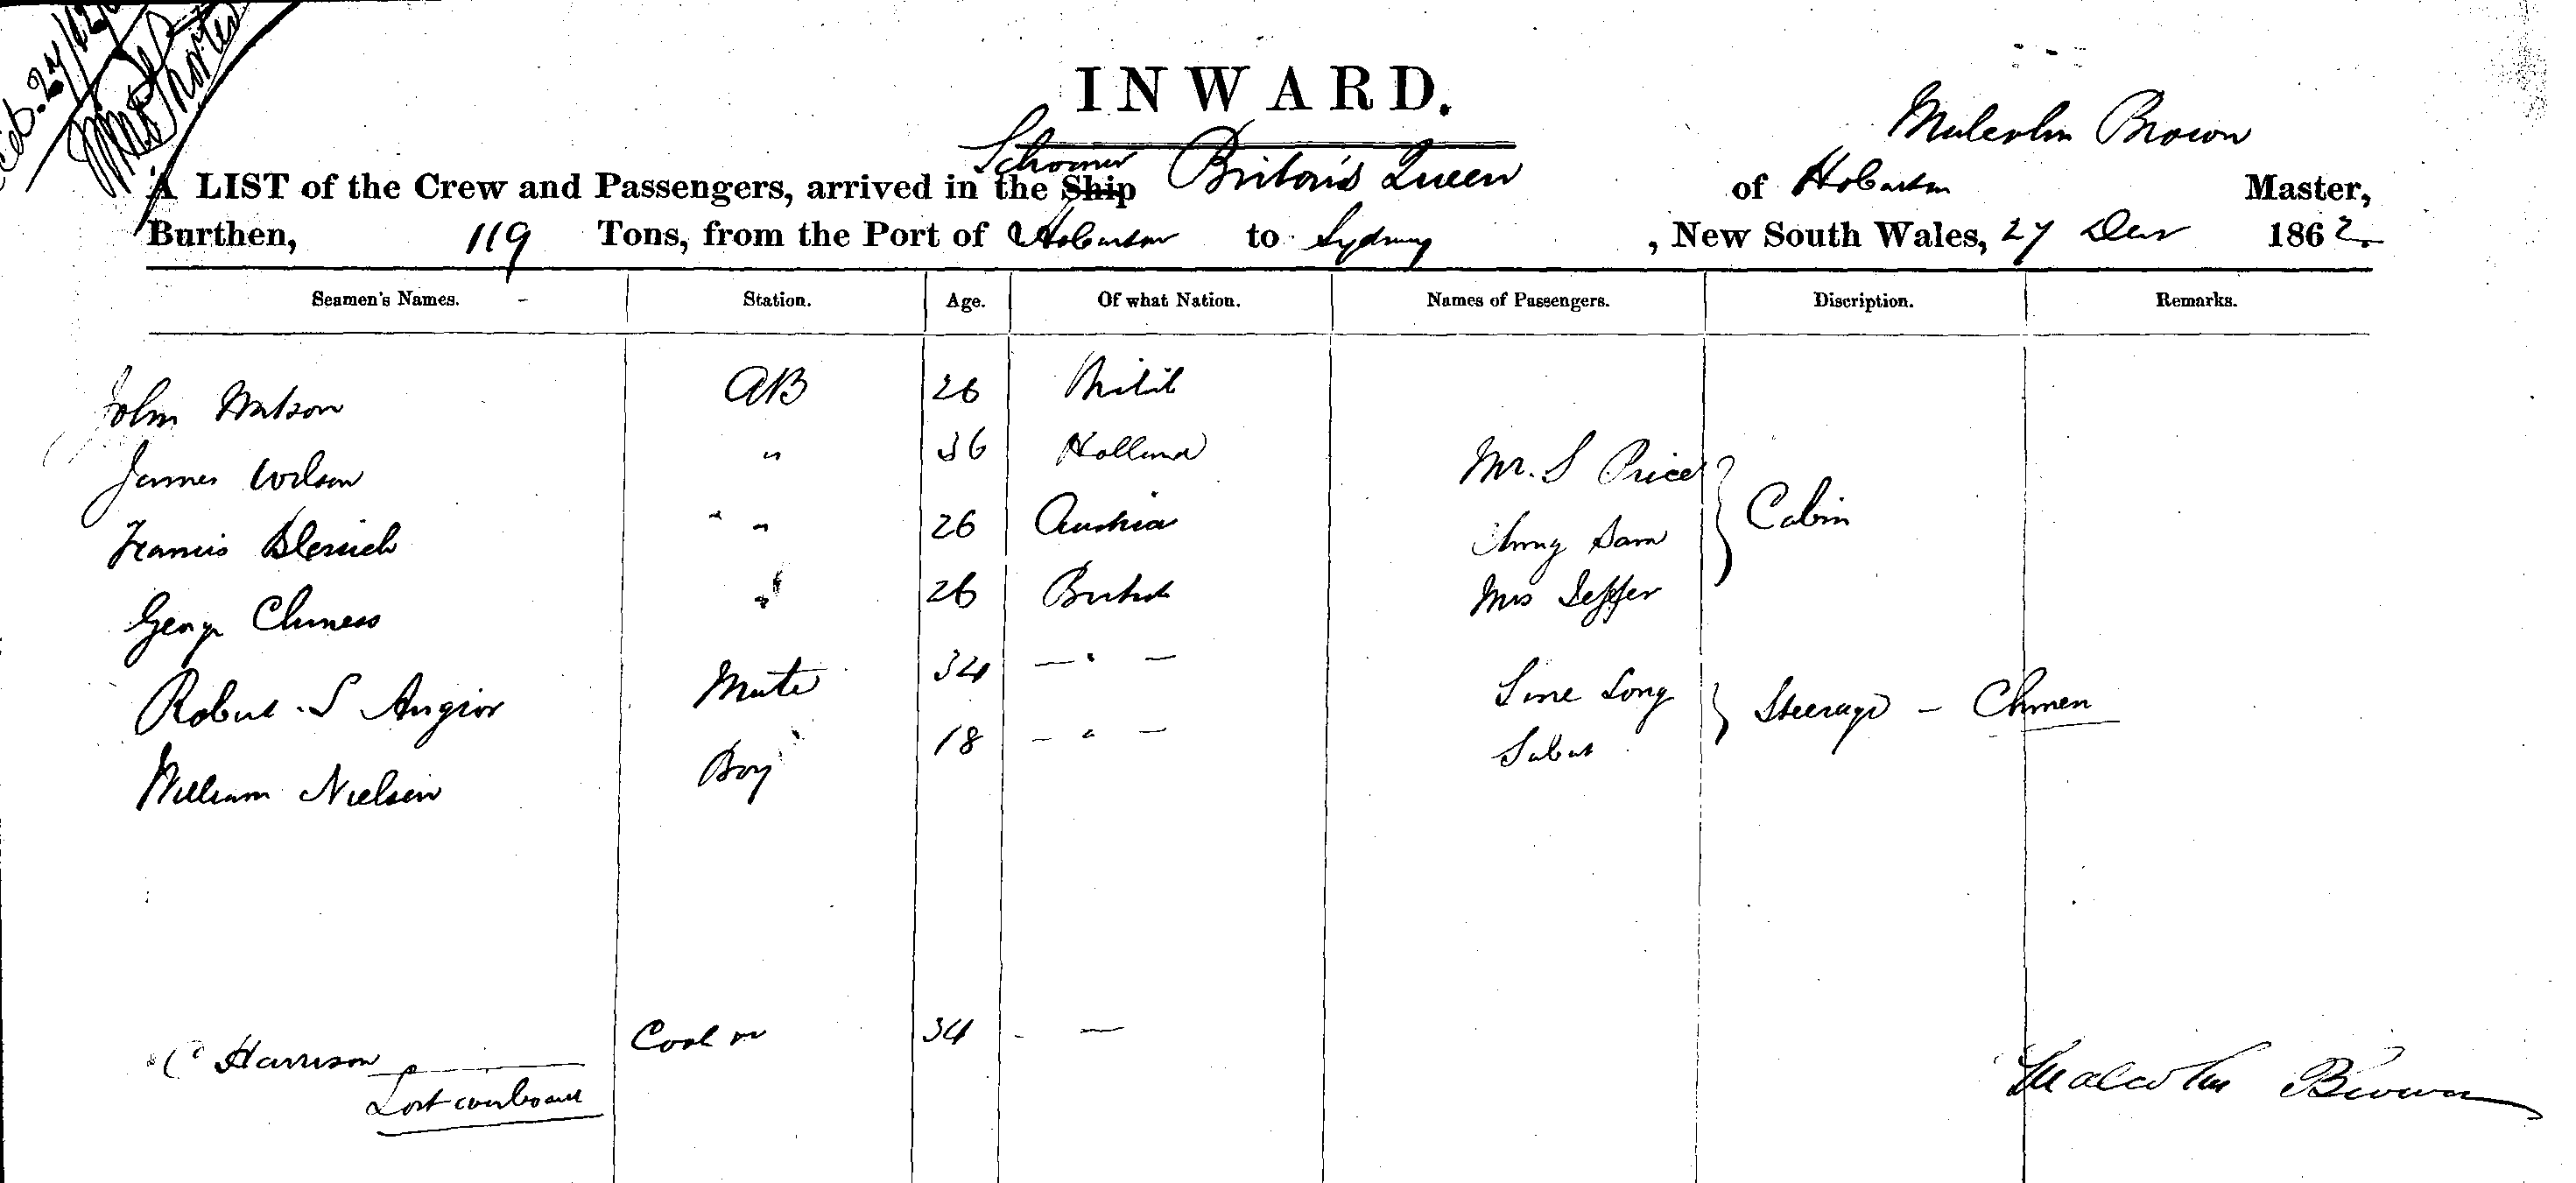 27/12/
INWARD.
Malcolm Brown
Schooner
A LIST of the Crew and Passengers, arrived in the Ship Briton's Queen of Hobarton Master,
Burthen, 119 Tons, from the Port of Hobarton to Sydney, New South Wales, 27 Decr 1862.
Seamen's Names. Station. Age. Of what Nation. Names of Passengers. Discription. Remarks.
John Watson AB 26 British
James Wilson " 36 Holland Mr. S Price
Francis " 26 Austria Sam Cabin
George " 26 British Mrs
Robert S Angior Mate 34 — " — Long Steerage –
William Nielsen Boy 18 – " –
C Harrison Cook 34 - —
Lost overboard
Malcolm Brown